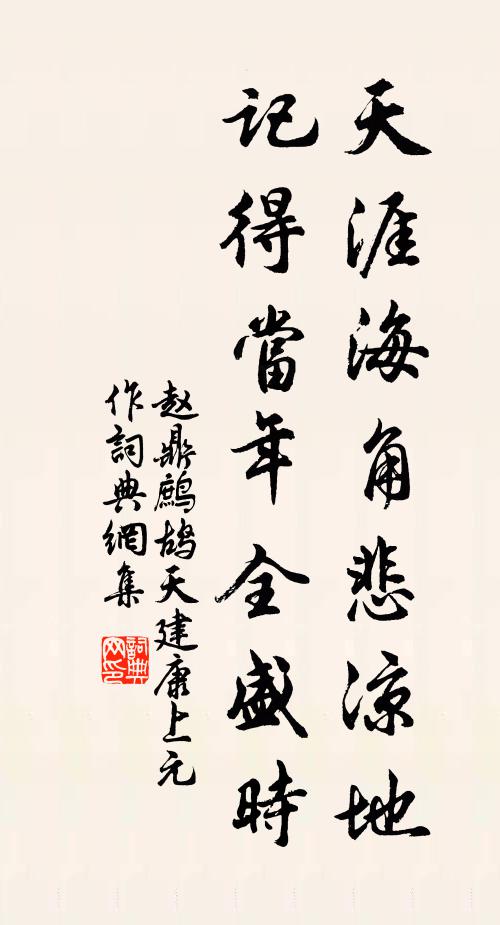 天涯海角悲凉地
記得當年全盛時
赵鼎鷓鴣天建康上元
作詞典網集
詞典
网印